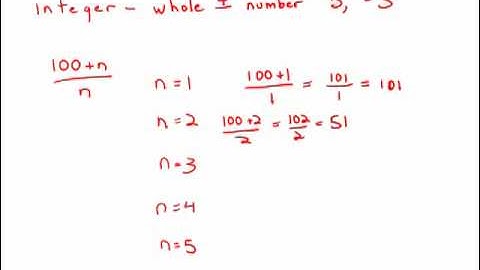 Integer – whole ± number 5, -5
(100+n)/n n=1 (100+1)/1 = 101/1 = 101
n=2 (100+2)/2 = 102/2 = 51
n=3
n=4
n=5